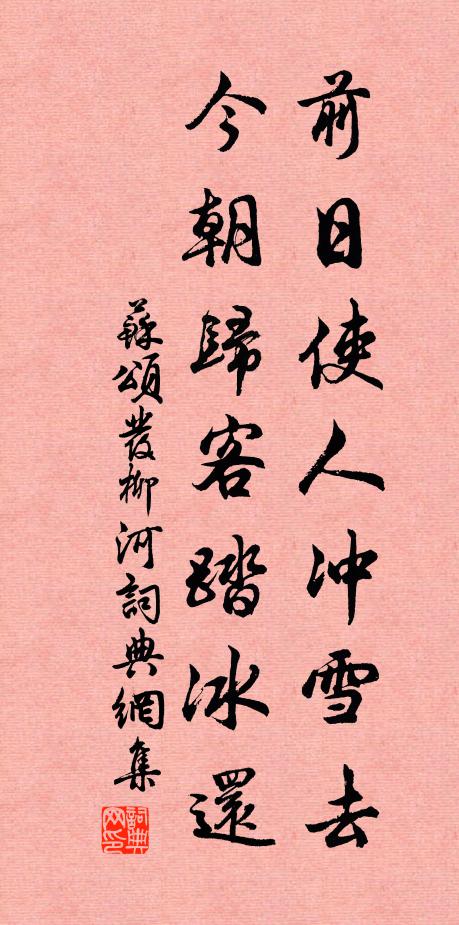 前日使人冲雪去
今朝歸客踏冰還
蘇頌發柳河詞典網集
詞典网印